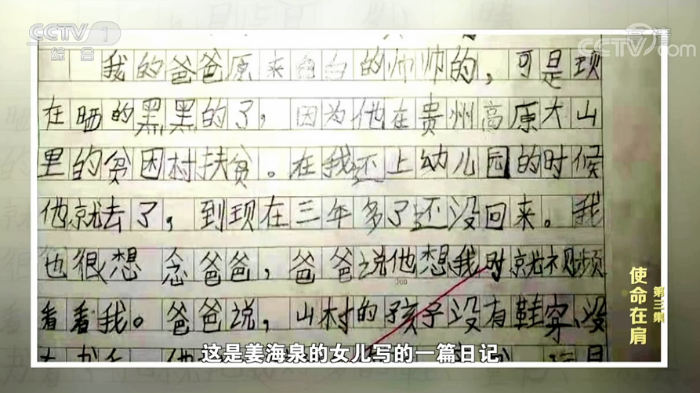 CCTV 1
综合
CCTV.com
我的爸爸原来白白的帅帅的，可是现
在晒的黑黑的了，因为他在贵州高原大山
里的贫困村扶贫。在我还上幼儿园的时候
他就去了，到现在三年多了还没回来。我
也很想念爸爸，爸爸说他想我时就视频
看看我。爸爸说，山村的孩子没有鞋穿，没
第三集
使命在肩
这是姜海泉的女儿写的一篇日记